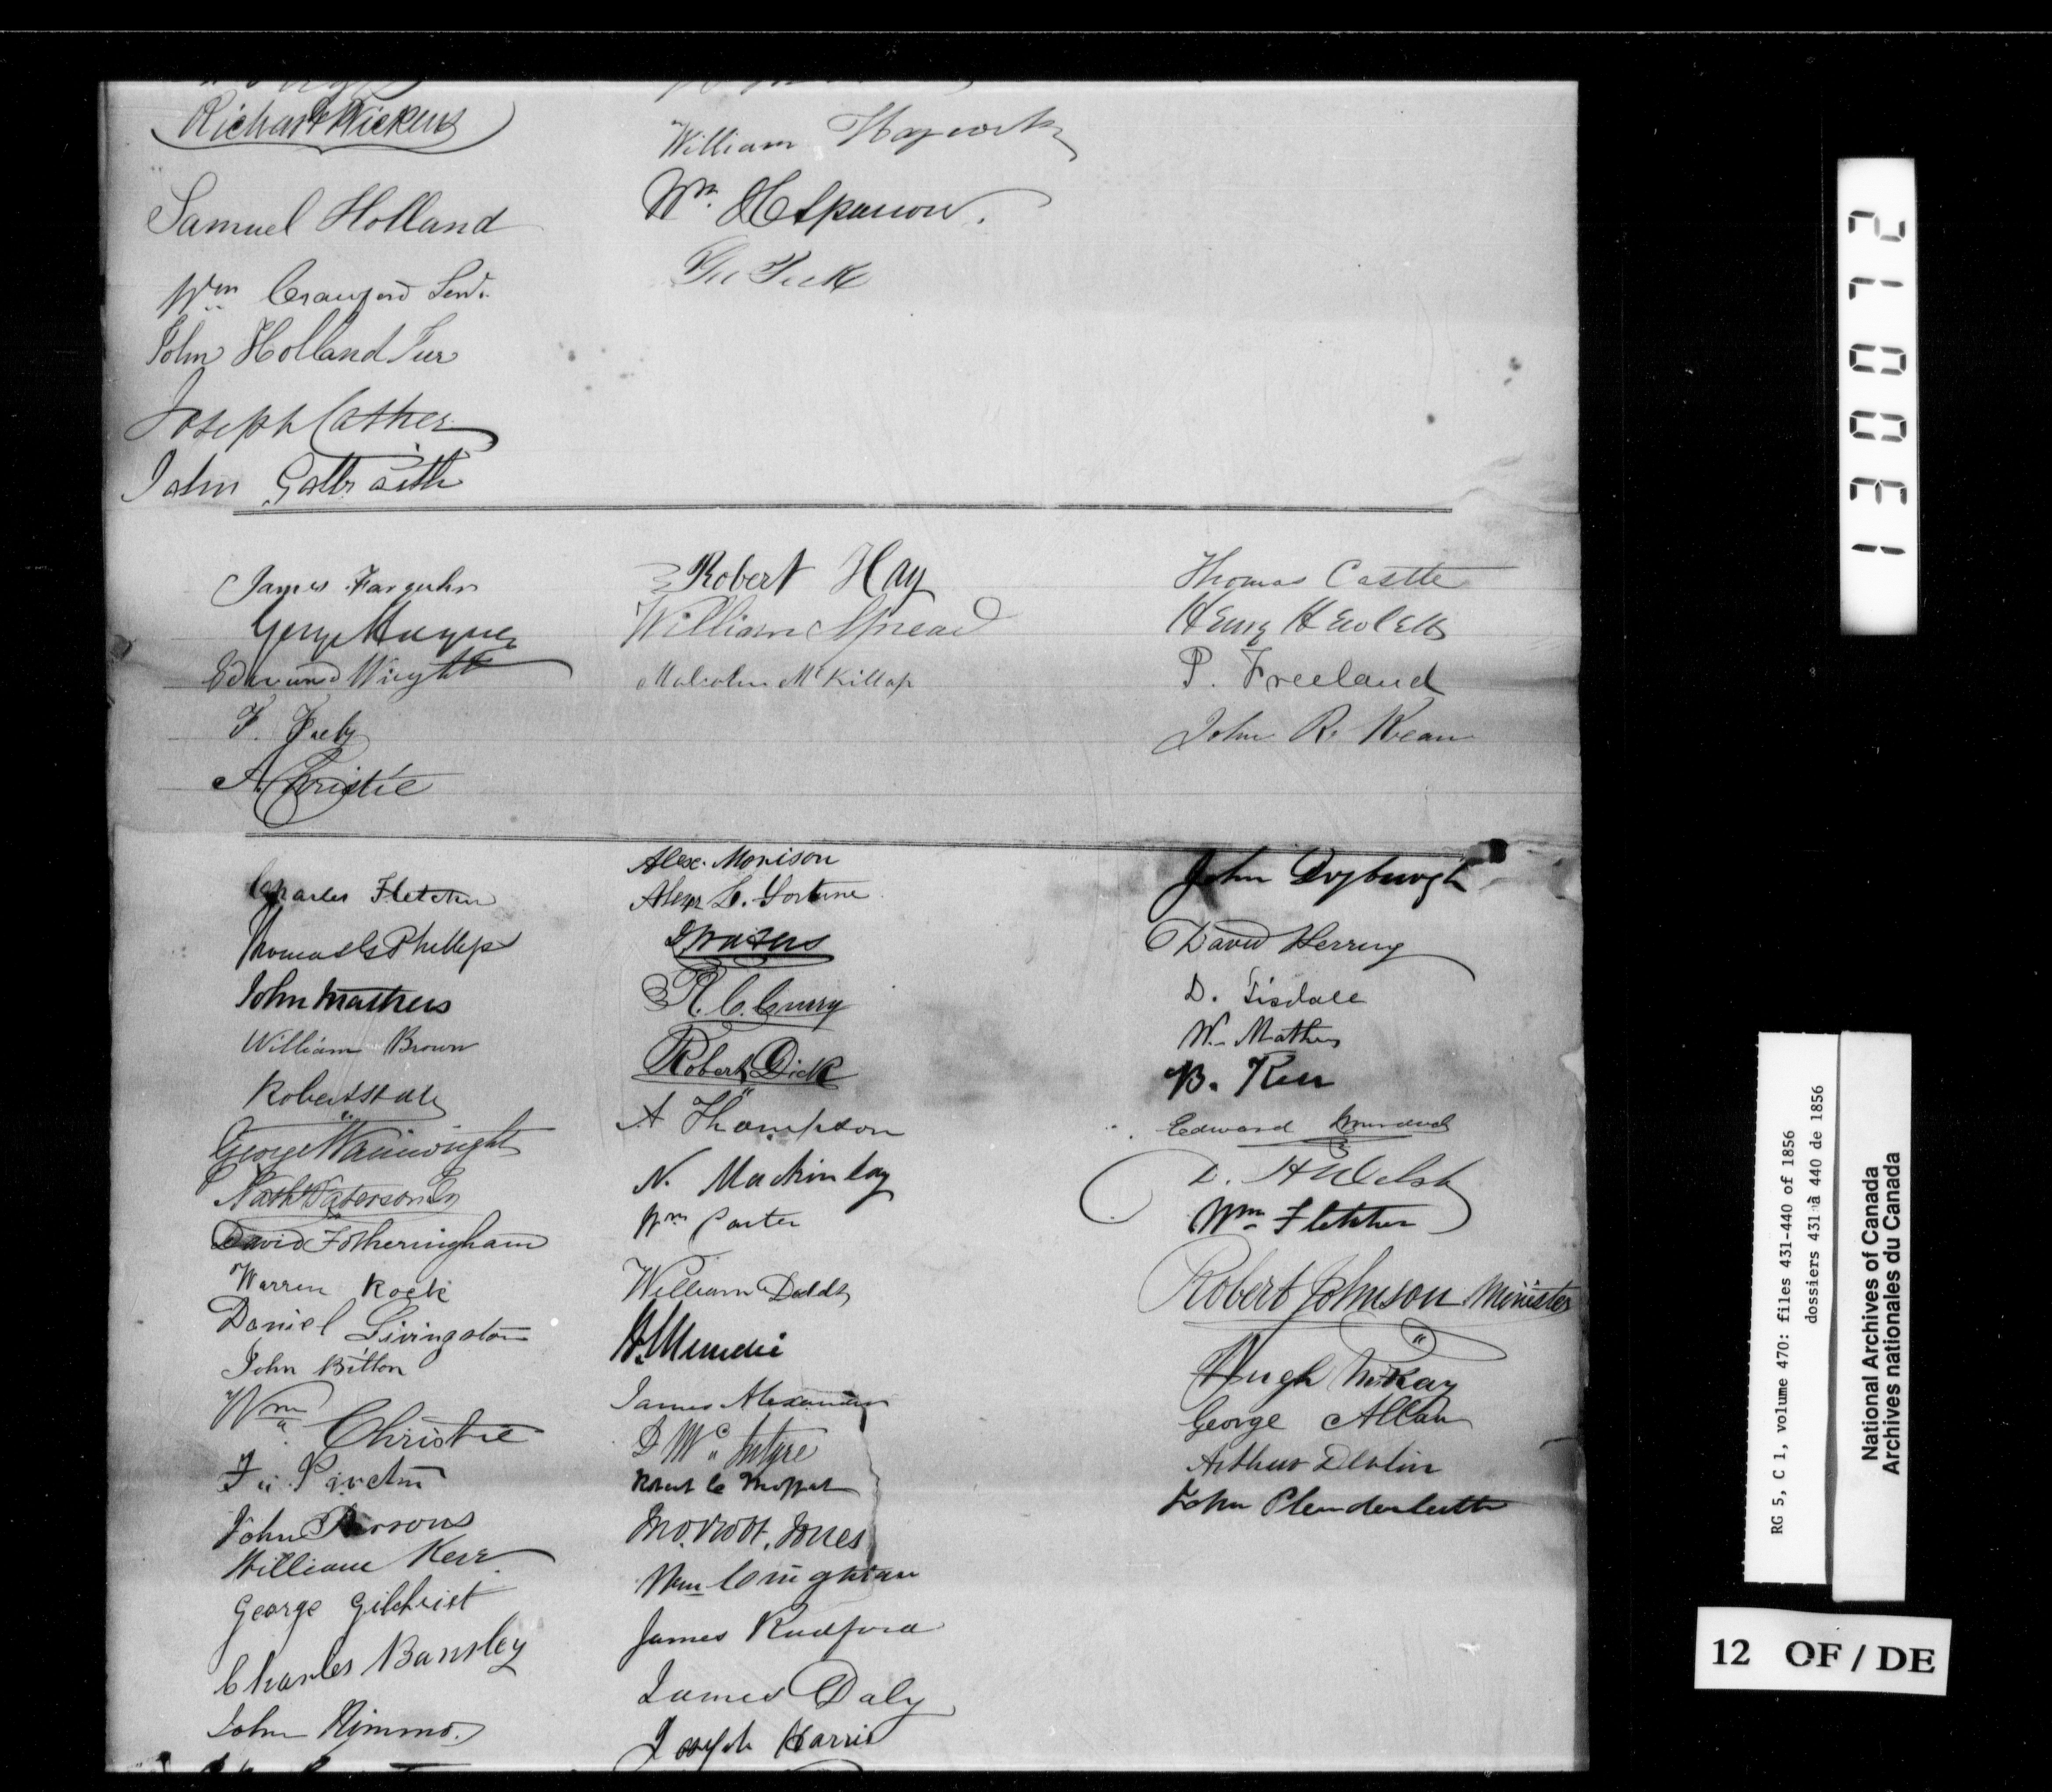 Richard Wickens
Samuel Holland
Wm Crawford Senr.
John Holland Jur
Joseph Cather
John Galbraith
William
Wm. H Sparrow.
Geo Peck
James Farquhar
George
Edmund Wright
F.
A. Christie
Robert Hay
William Snead
Malcolm McKillop
Thomas Castle
Henry Hewlett
P. Freeland
John R. Kean
Charles Fletcher
Thomas G Phillips
John Mathers
William Brown
Robert
George Wainwright
Nath Paterson
David Fotheringham
Warren Rock
Daniel Livingston
John Bitton
Wm Christie
John Parsons
William Kerr
George Gilchrist
Charles Bansley
John Nimmo.
Alex. Morison
Alexr L. Fortune
R. C. Curry
Robert Dick
A Thompson
N. Mackinlay
Wm Carter
William Dodds
James Alexander
D McIntyre
Robert C Moffat
Jno. Jones
Wm Coughlan
James Radford
James Daly
Joseph Harris
John Dryburgh
David Herring
D. Tisdale
W. Mathers
B. Kerr
Edward Murdoch
D. H Welsh
Wm Fletcher
Robert Johnson Minister
Hugh McKay
George Allan
Arthur Devlin
John Plenderleith
130072
RG 5, C 1, volume 470: files 431-440 of 1856
dossiers 431 à 440 de 1856
National Archives of Canada
Archives nationales du Canada
12 OF / DE